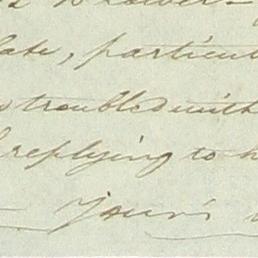 late, particul
troubled with
replying to h
Your's